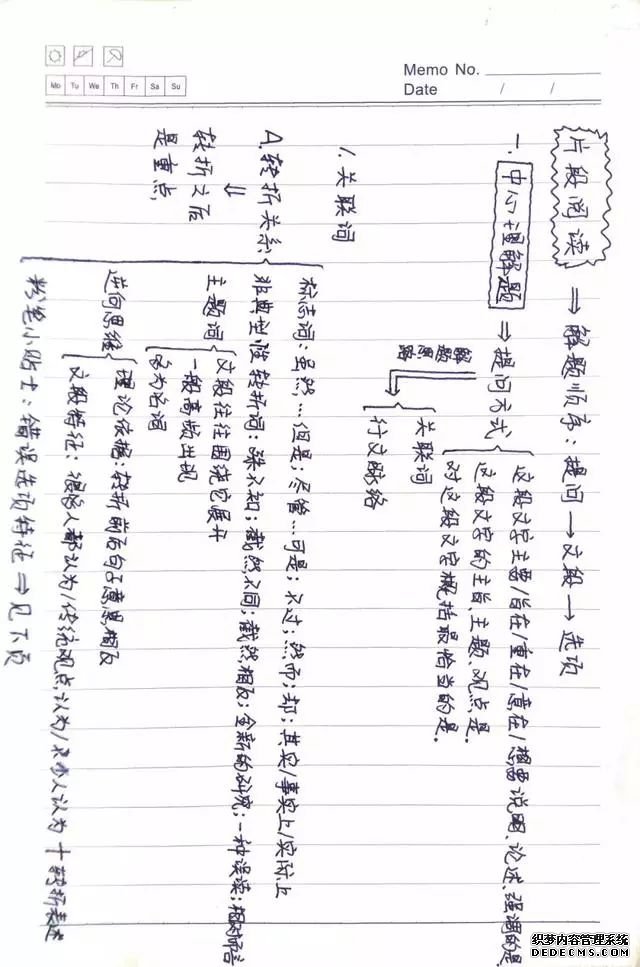 Memo No.
Date / /
Mo Tu We Th Fr Sa Su
片段阅读 ⇒ 解题顺序：提问 → 文段 → 选项
一. 中心理解题 ⇒ 提问方式
这段文字主要/旨在/重在/意在/想要说明、论述、强调的是
这段文字的主旨、主题、观点是.
对这段文字概括最恰当的是.
解题思路
关联词
行文脉络
1. 关联词
A. 转折关系
⇓
转折之后是重点,
标志词：虽然…但是；尽管…可是；不过；然而；却；其实/事实上/实际上
非典型性转折词：殊不知；截然不同；截然相反；全新的研究；一种误读；相对而言
主题词
文段往往围绕它展开
一般高频出现
多为名词
逆向思维
理论依据：转折前后句子意思相反
文段特征：很多人都认为/传统观点,认为/不少人认为 + 转折表述
粉笔小贴士：错误选项特征 ⇒ 见下页
织梦内容管理系统
DEDECMS.COM